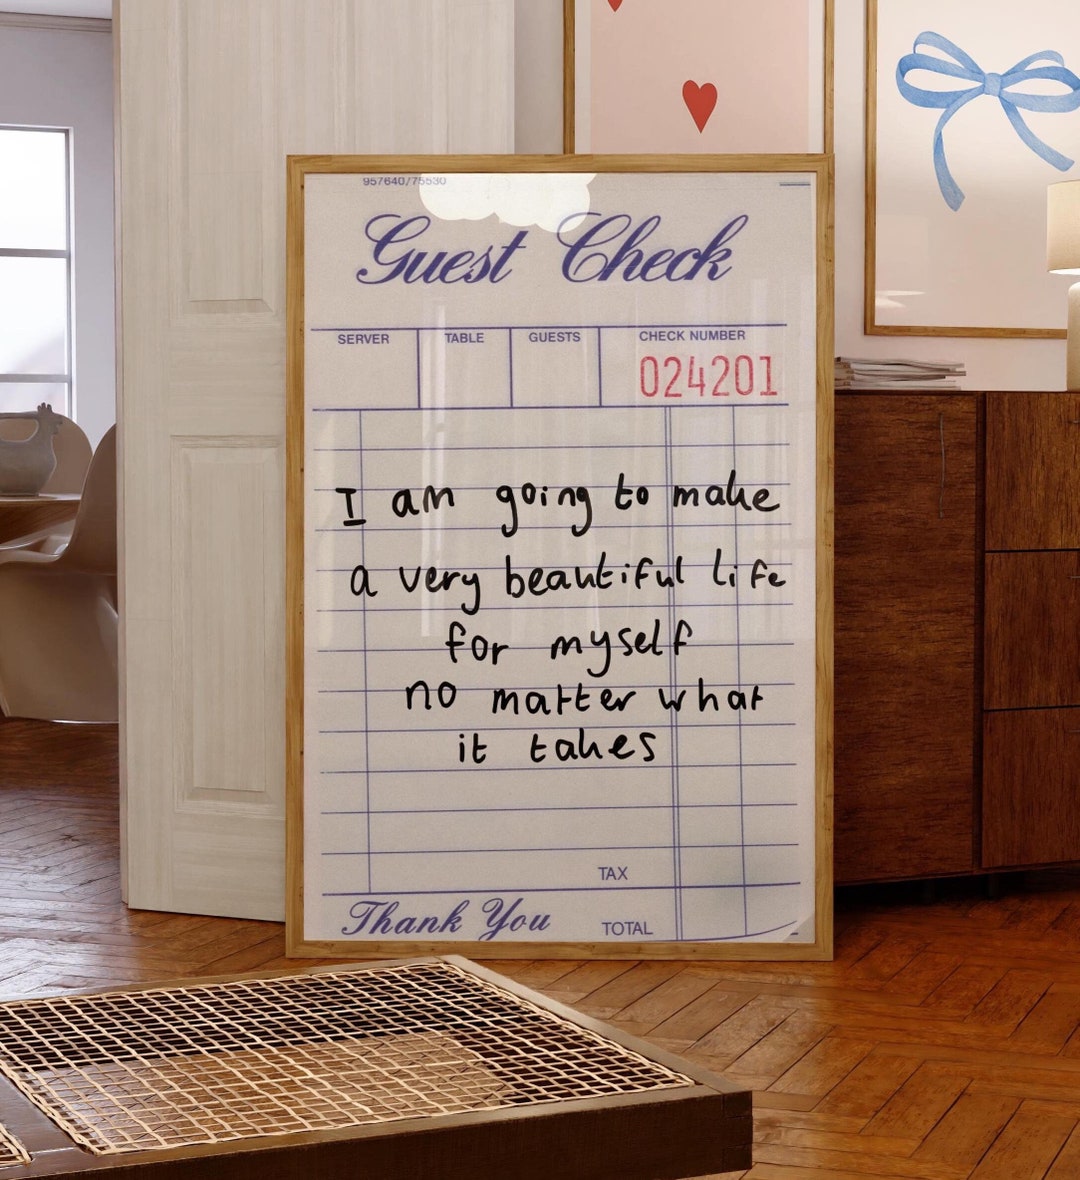 957640/75530
Guest Check
SERVER TABLE GUESTS CHECK NUMBER
024201
I am going to make
a very beautiful life
for myself
no matter what
it takes
TAX
Thank You TOTAL